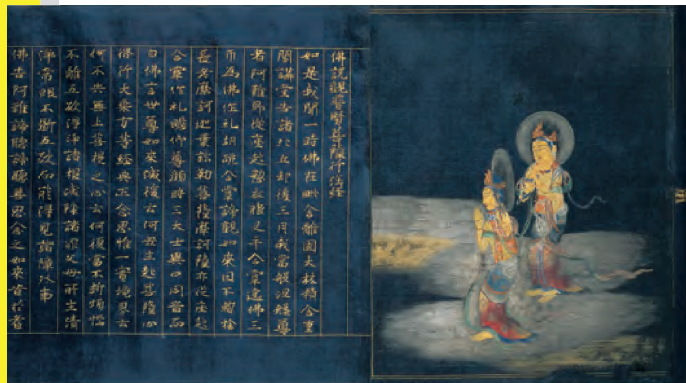 佛說觀普賢菩薩行法經
如是我聞一時佛在毗舍離國大林精舍重
閣講堂告諸比丘却後三月我當般涅槃尊
者阿難即從座起整衣服叉手合掌遶佛三
匝為佛作礼胡跪合掌諦觀如来目不暫捨
長老摩訶迦葉弥勒菩薩摩訶薩亦從座起
合掌作礼瞻仰尊顏時三大士異口同音而
白佛言世尊如来滅後云何衆生起菩薩心
修行大乗方等經典正念思惟一實境界云
何不失無上菩提之心云何復當不断煩惱
不離五欲得淨諸根滅除諸罪父母所生清
淨常眼不断五欲而能得見諸障外事
佛告阿難諦聽諦聽善思念之如来昔於耆